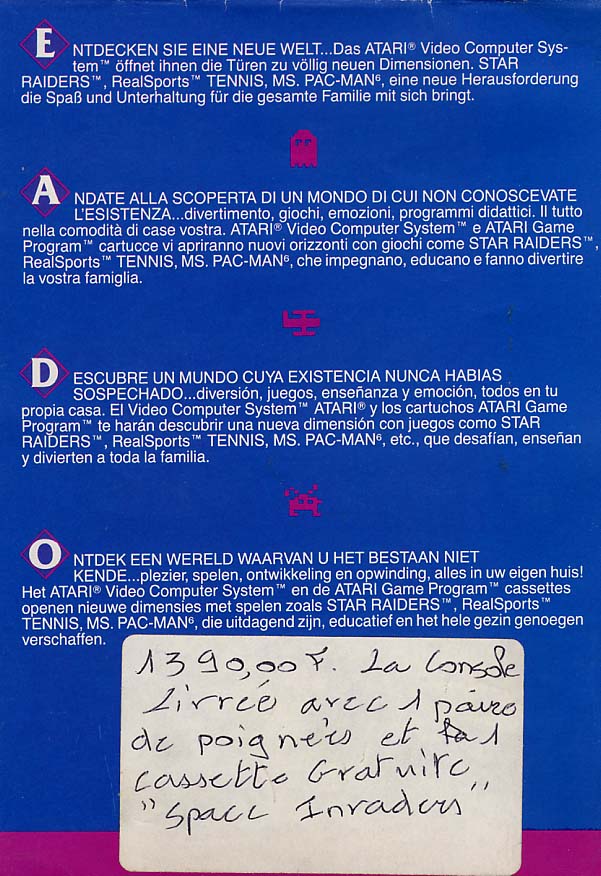 ENTDECKEN SIE EINE NEUE WELT...Das ATARI® Video Computer Sys-
tem™ öffnet ihnen die Türen zu völlig neuen Dimensionen. STAR
RAIDERS™, RealSports™ TENNIS, MS. PAC-MAN⁶, eine neue Herausforderung
die Spaß und Unterhaltung für die gesamte Familie mit sich bringt.
ANDATE ALLA SCOPERTA DI UN MONDO DI CUI NON CONOSCEVATE
L'ESISTENZA...divertimento, giochi, emozioni, programmi didattici. Il tutto
nella comodità di case vostra. ATARI® Video Computer System™ e ATARI Game
Program™ cartucce vi apriranno nuovi orizzonti con giochi come STAR RAIDERS™,
RealSports™ TENNIS, MS. PAC-MAN⁶, che impegnano, educano e fanno divertire
la vostra famiglia.
DESCUBRE UN MUNDO CUYA EXISTENCIA NUNCA HABIAS
SOSPECHADO...diversión, juegos, enseñanza y emoción, todos en tu
propia casa. El Video Computer System™ ATARI® y los cartuchos ATARI Game
Program™ te harán descubrir una nueva dimensión con juegos como STAR
RAIDERS™, RealSports™ TENNIS, MS. PAC-MAN⁶, etc., que desafían, enseñan
y divierten a toda la familia.
ONTDEK EEN WERELD WAARVAN U HET BESTAAN NIET
KENDE...plezier, spelen, ontwikkeling en opwinding, alles in uw eigen huis!
Het ATARI® Video Computer System™ en de ATARI Game Program™ cassettes
openen nieuwe dimensies met spelen zoals STAR RAIDERS™, RealSports™
TENNIS, MS. PAC-MAN⁶, die uitdagend zijn, educatief en het hele gezin genoegen
verschaffen.
1390,00 F. La Console
Livrée avec 1 paire
de poignées et 1
cassette Gratuite
"Space Invaders"